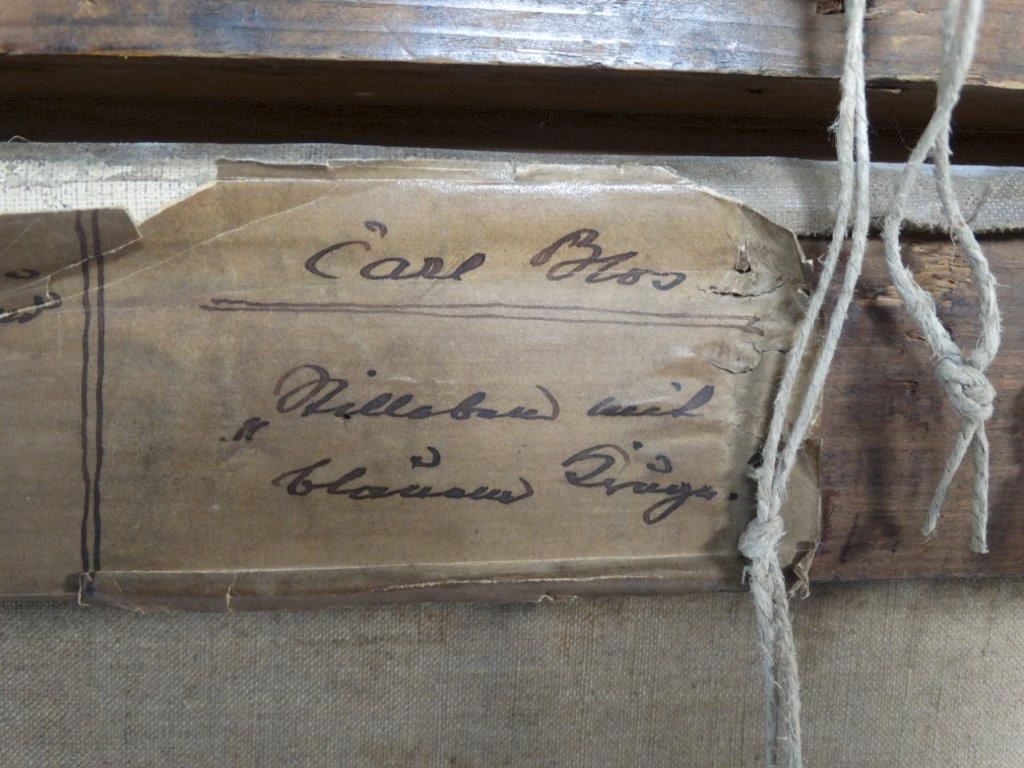 Carl Blos
„Stilleben mit
blauem Kruge."